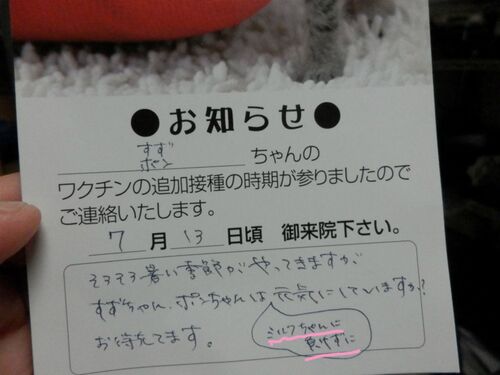 ●お知らせ●
すず
ポン
ちゃんの
ワクチンの追加接種の時期が参りましたので
ご連絡いたします。
7月13日頃 御来院下さい。
そろそろ暑い季節がやってきますが
すずちゃん、ポンちゃんは元気にしていますか?
お待ちしてます。
ミルクちゃんに
負けずに